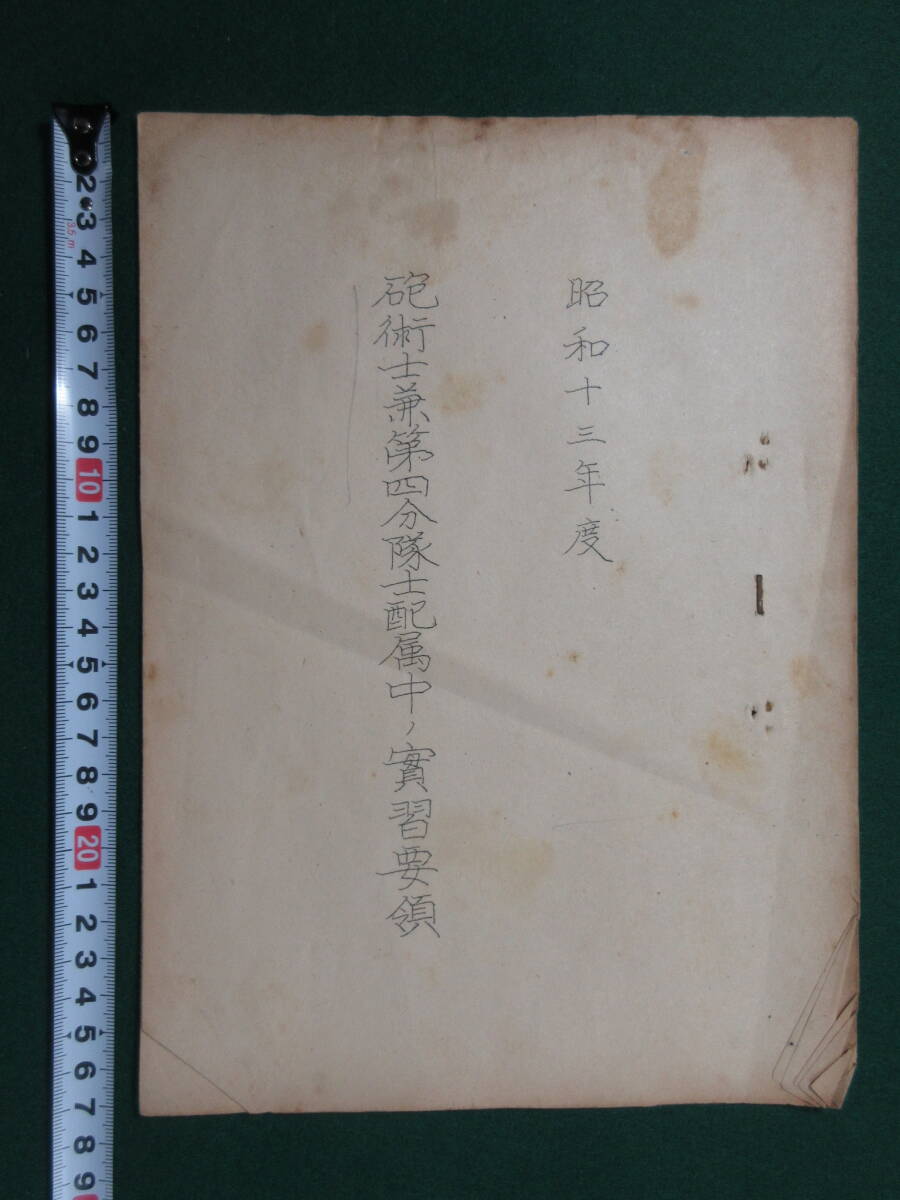 昭和十三年度
砲術士兼第四分隊士配属中ノ實習要領
2 3 4 5 6 7 8 9 10 1 2 3 4 5 6 7 8 9 20 1 2 3 4 5 6 7 8 9
3.5m